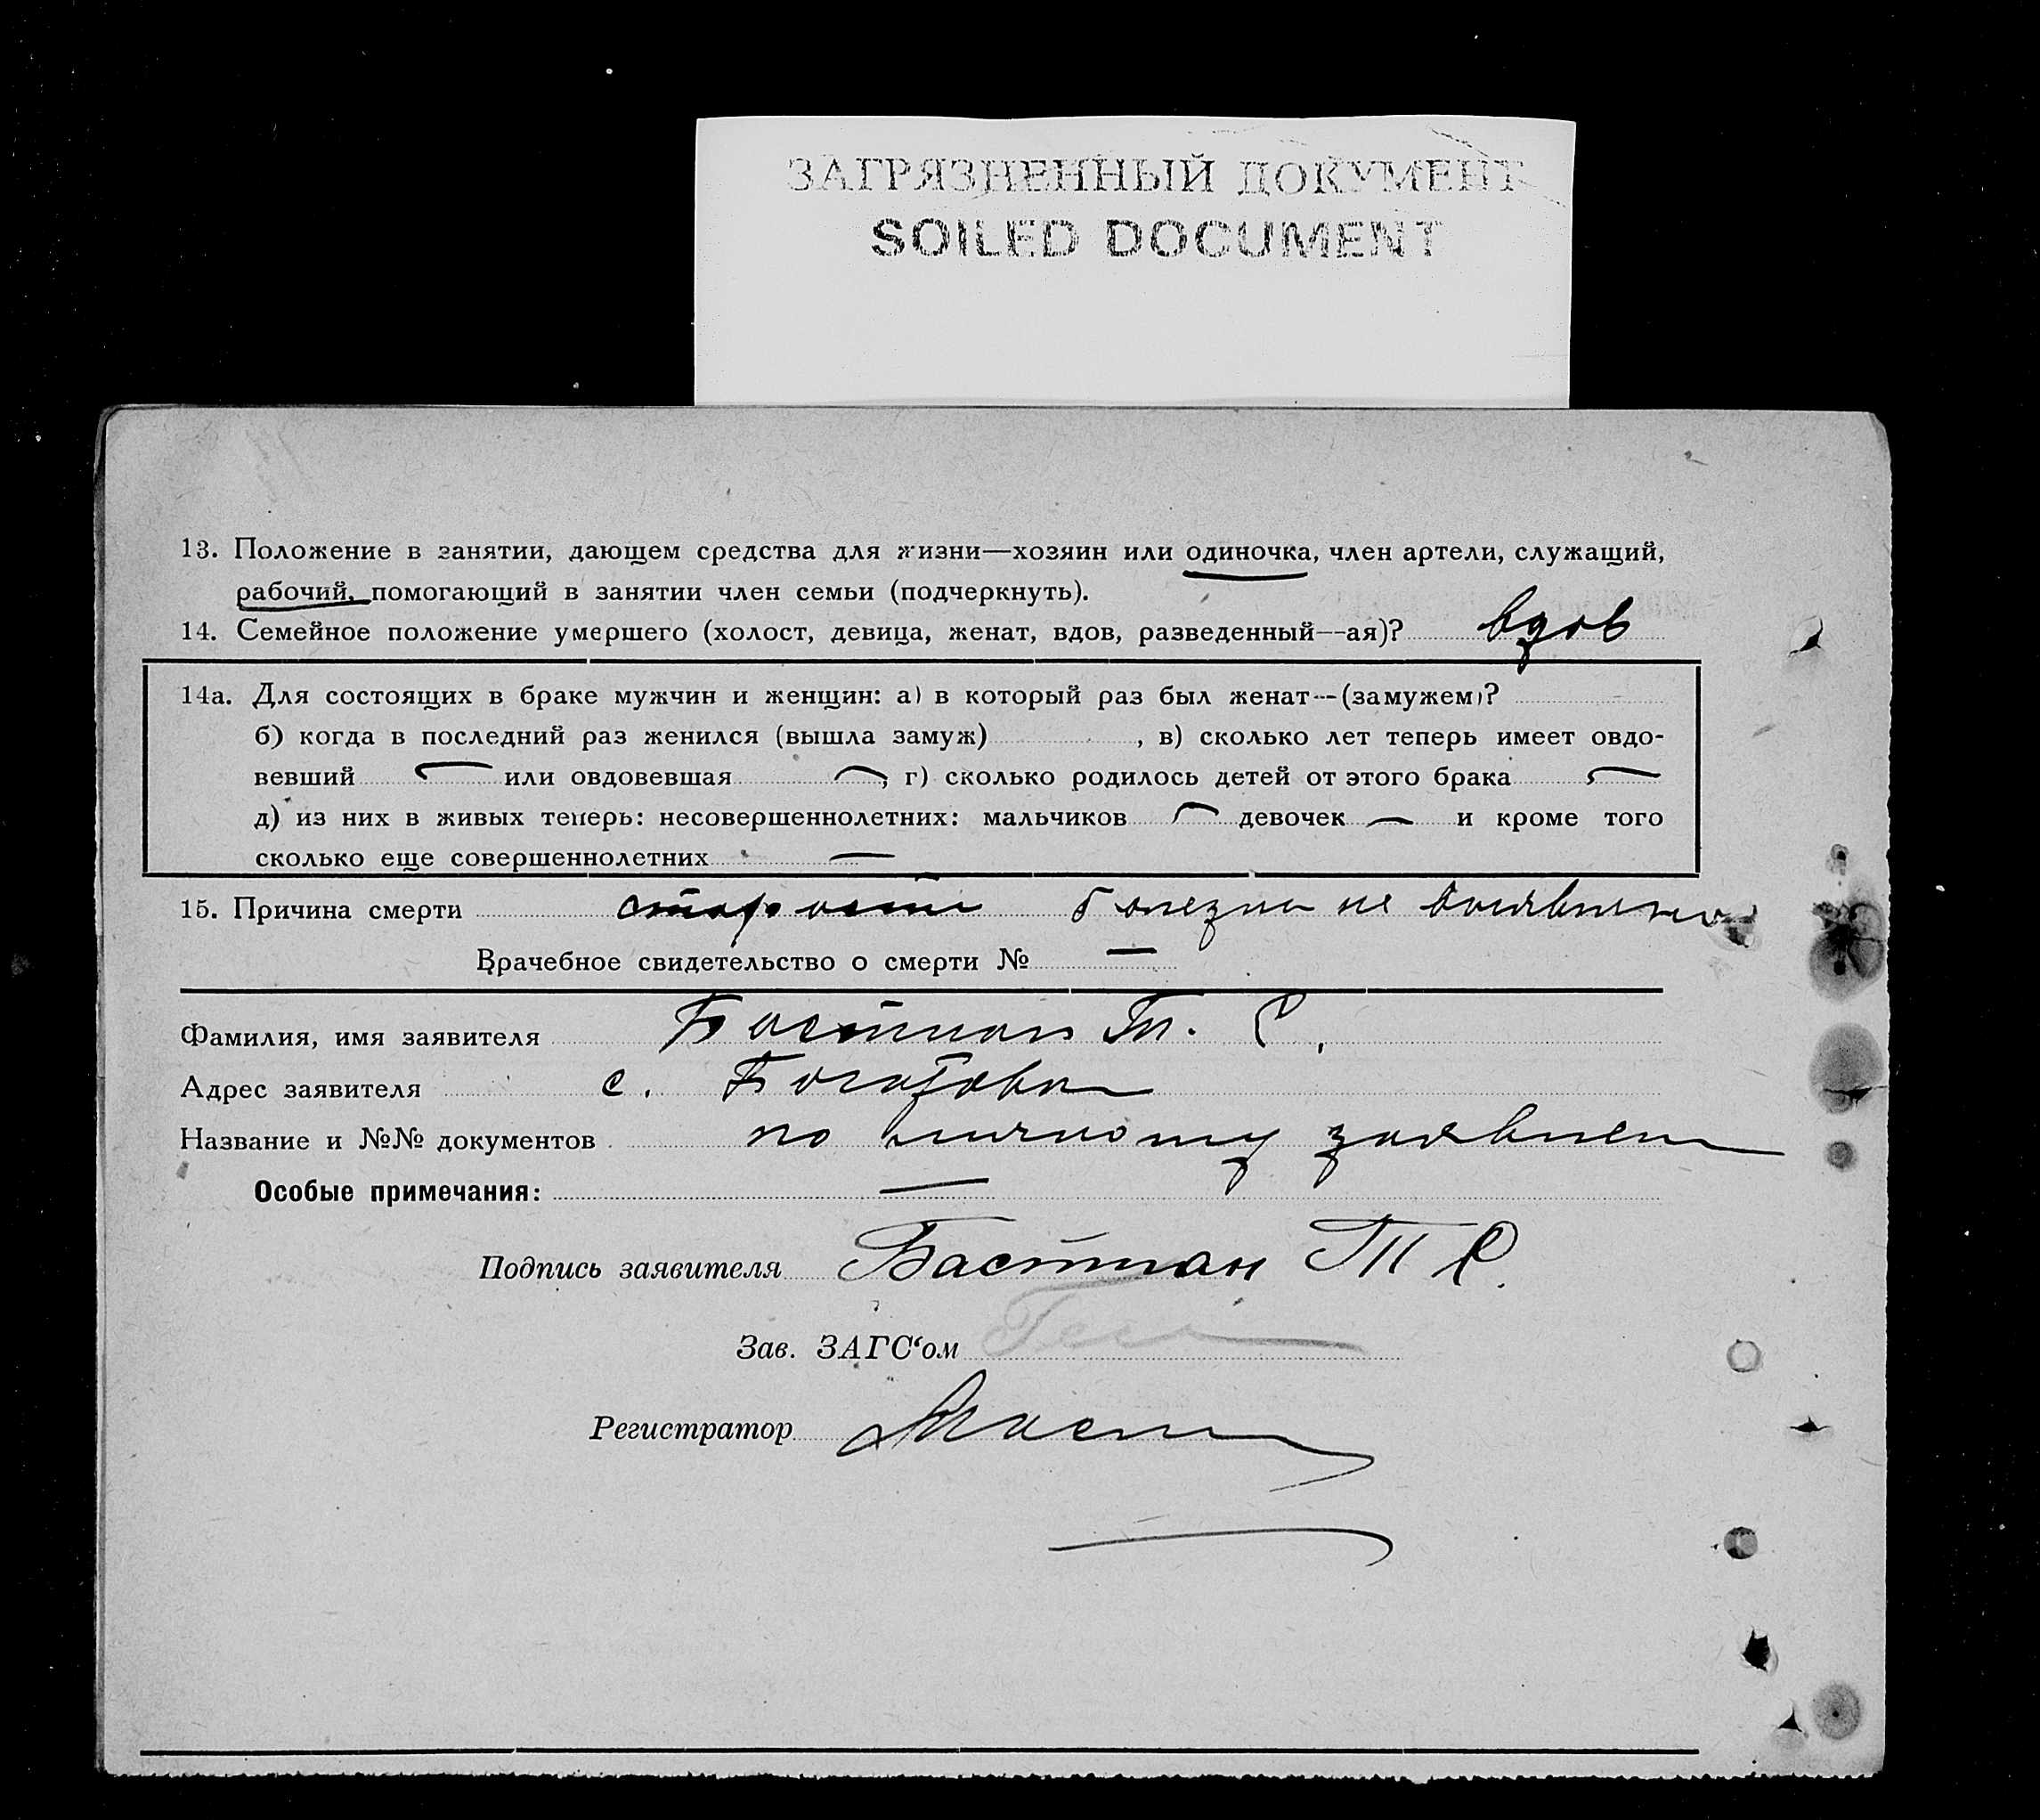 ЗАГРЯЗНЕННЫЙ ДОКУМЕНТ
SOILED DOCUMENT
13. Положение в занятии, дающем средства для жизни—хозяин или одиночка, член артели, служащий,
рабочий, помогающий в занятии член семьи (подчеркнуть).
14. Семейное положение умершего (холост, девица, женат, вдов, разведенный—ая)? вдов
14а. Для состоящих в браке мужчин и женщин: а) в который раз был женат—(замужем)?
б) когда в последний раз женился (вышла замуж) , в) сколько лет теперь имеет овдо-
вевший — или овдовевшая —, г) сколько родилось детей от этого брака —
д) из них в живых теперь: несовершеннолетних: мальчиков — девочек — и кроме того
сколько еще совершеннолетних —
15. Причина смерти старости болезни не
Врачебное свидетельство о смерти № —
Фамилия, имя заявителя Бастиан Т. С.
Адрес заявителя с.
Название и №№ документов по личному заявлен
Особые примечания: —
Подпись заявителя Бастиан Т С.
Зав. ЗАГС‘ом
Регистратор